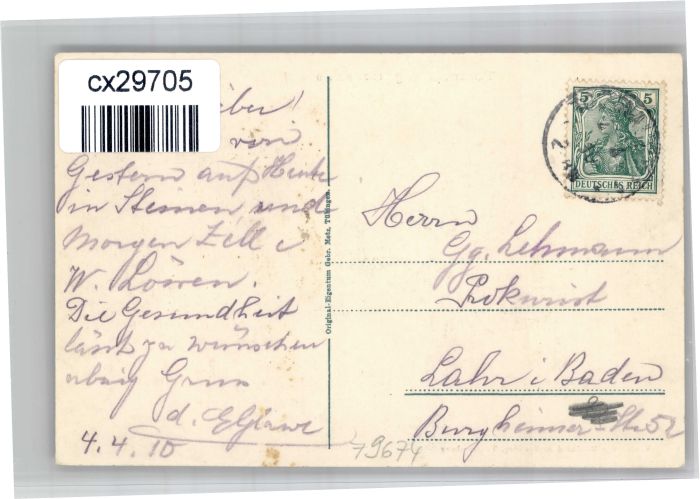 cx29705
Lieber!
von
Gestern auf Heute
in Steinen und
Morgen Zell i
W. Löwen.
Die Gesundheit
läst zu wünschen
übrig Gruss
d.
4.4.10
Original-Eigentum Gebr. Metz, Tübingen.
5 5
DEUTSCHES REICH
Herrn
Gg. Lehmann
Prokurist
Lahr i Baden
Burgheimer-Str 52
79674